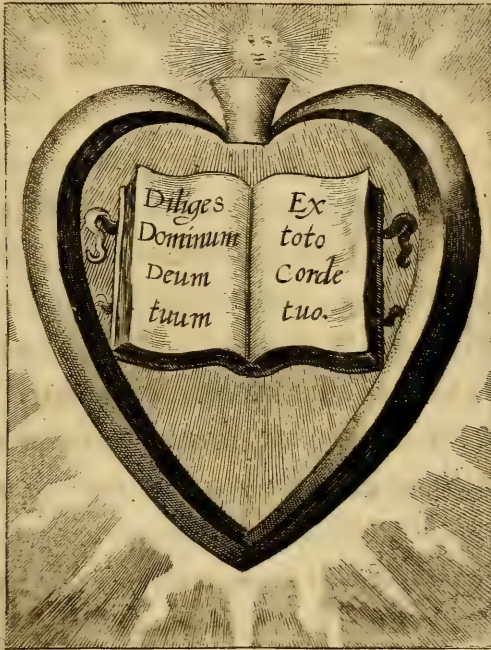 Diliges
Dominum
Deum
tuum
Ex
toto
Corde
tuo.